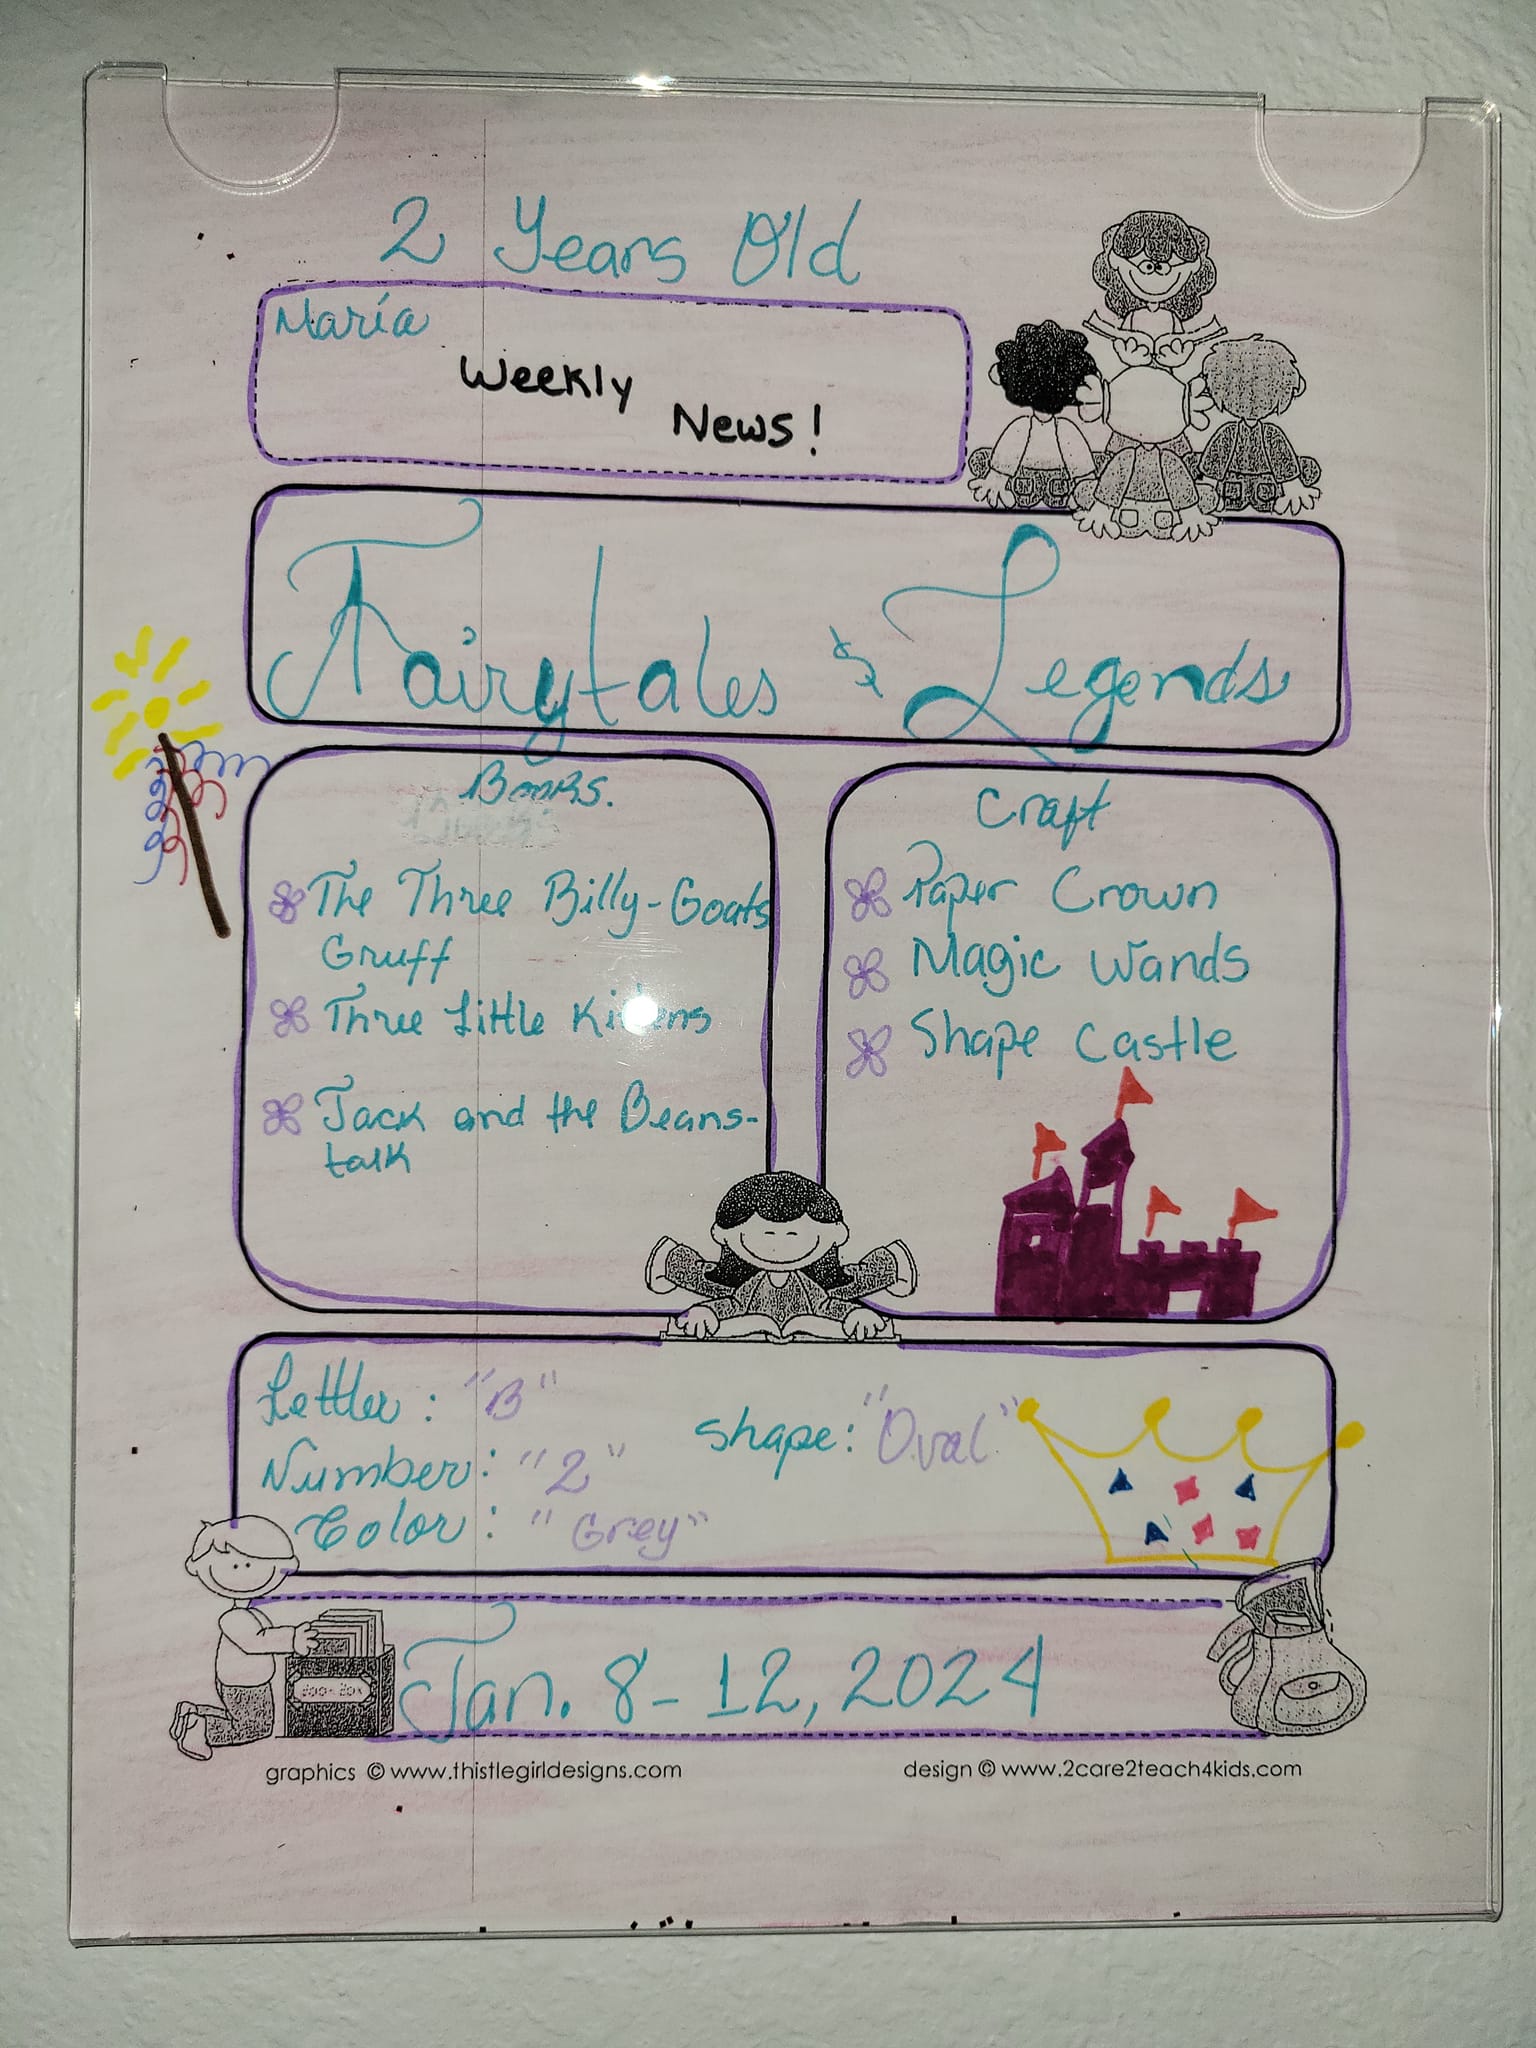 2 Years Old
María
Weekly
News!
Fairytales & Legends
Books.
The Three Billy-Goats
Gruff
Three Little Kittens
Jack and the Beans-
talk
Craft
Paper Crown
Magic Wands
Shape Castle
Letter: "B"
Number: "2"
Color: "Grey"
Shape: "Oval"
Book Box
Jan. 8-12, 2024
graphics © www.thistlegirldesigns.com
design © www.2care2teach4kids.com